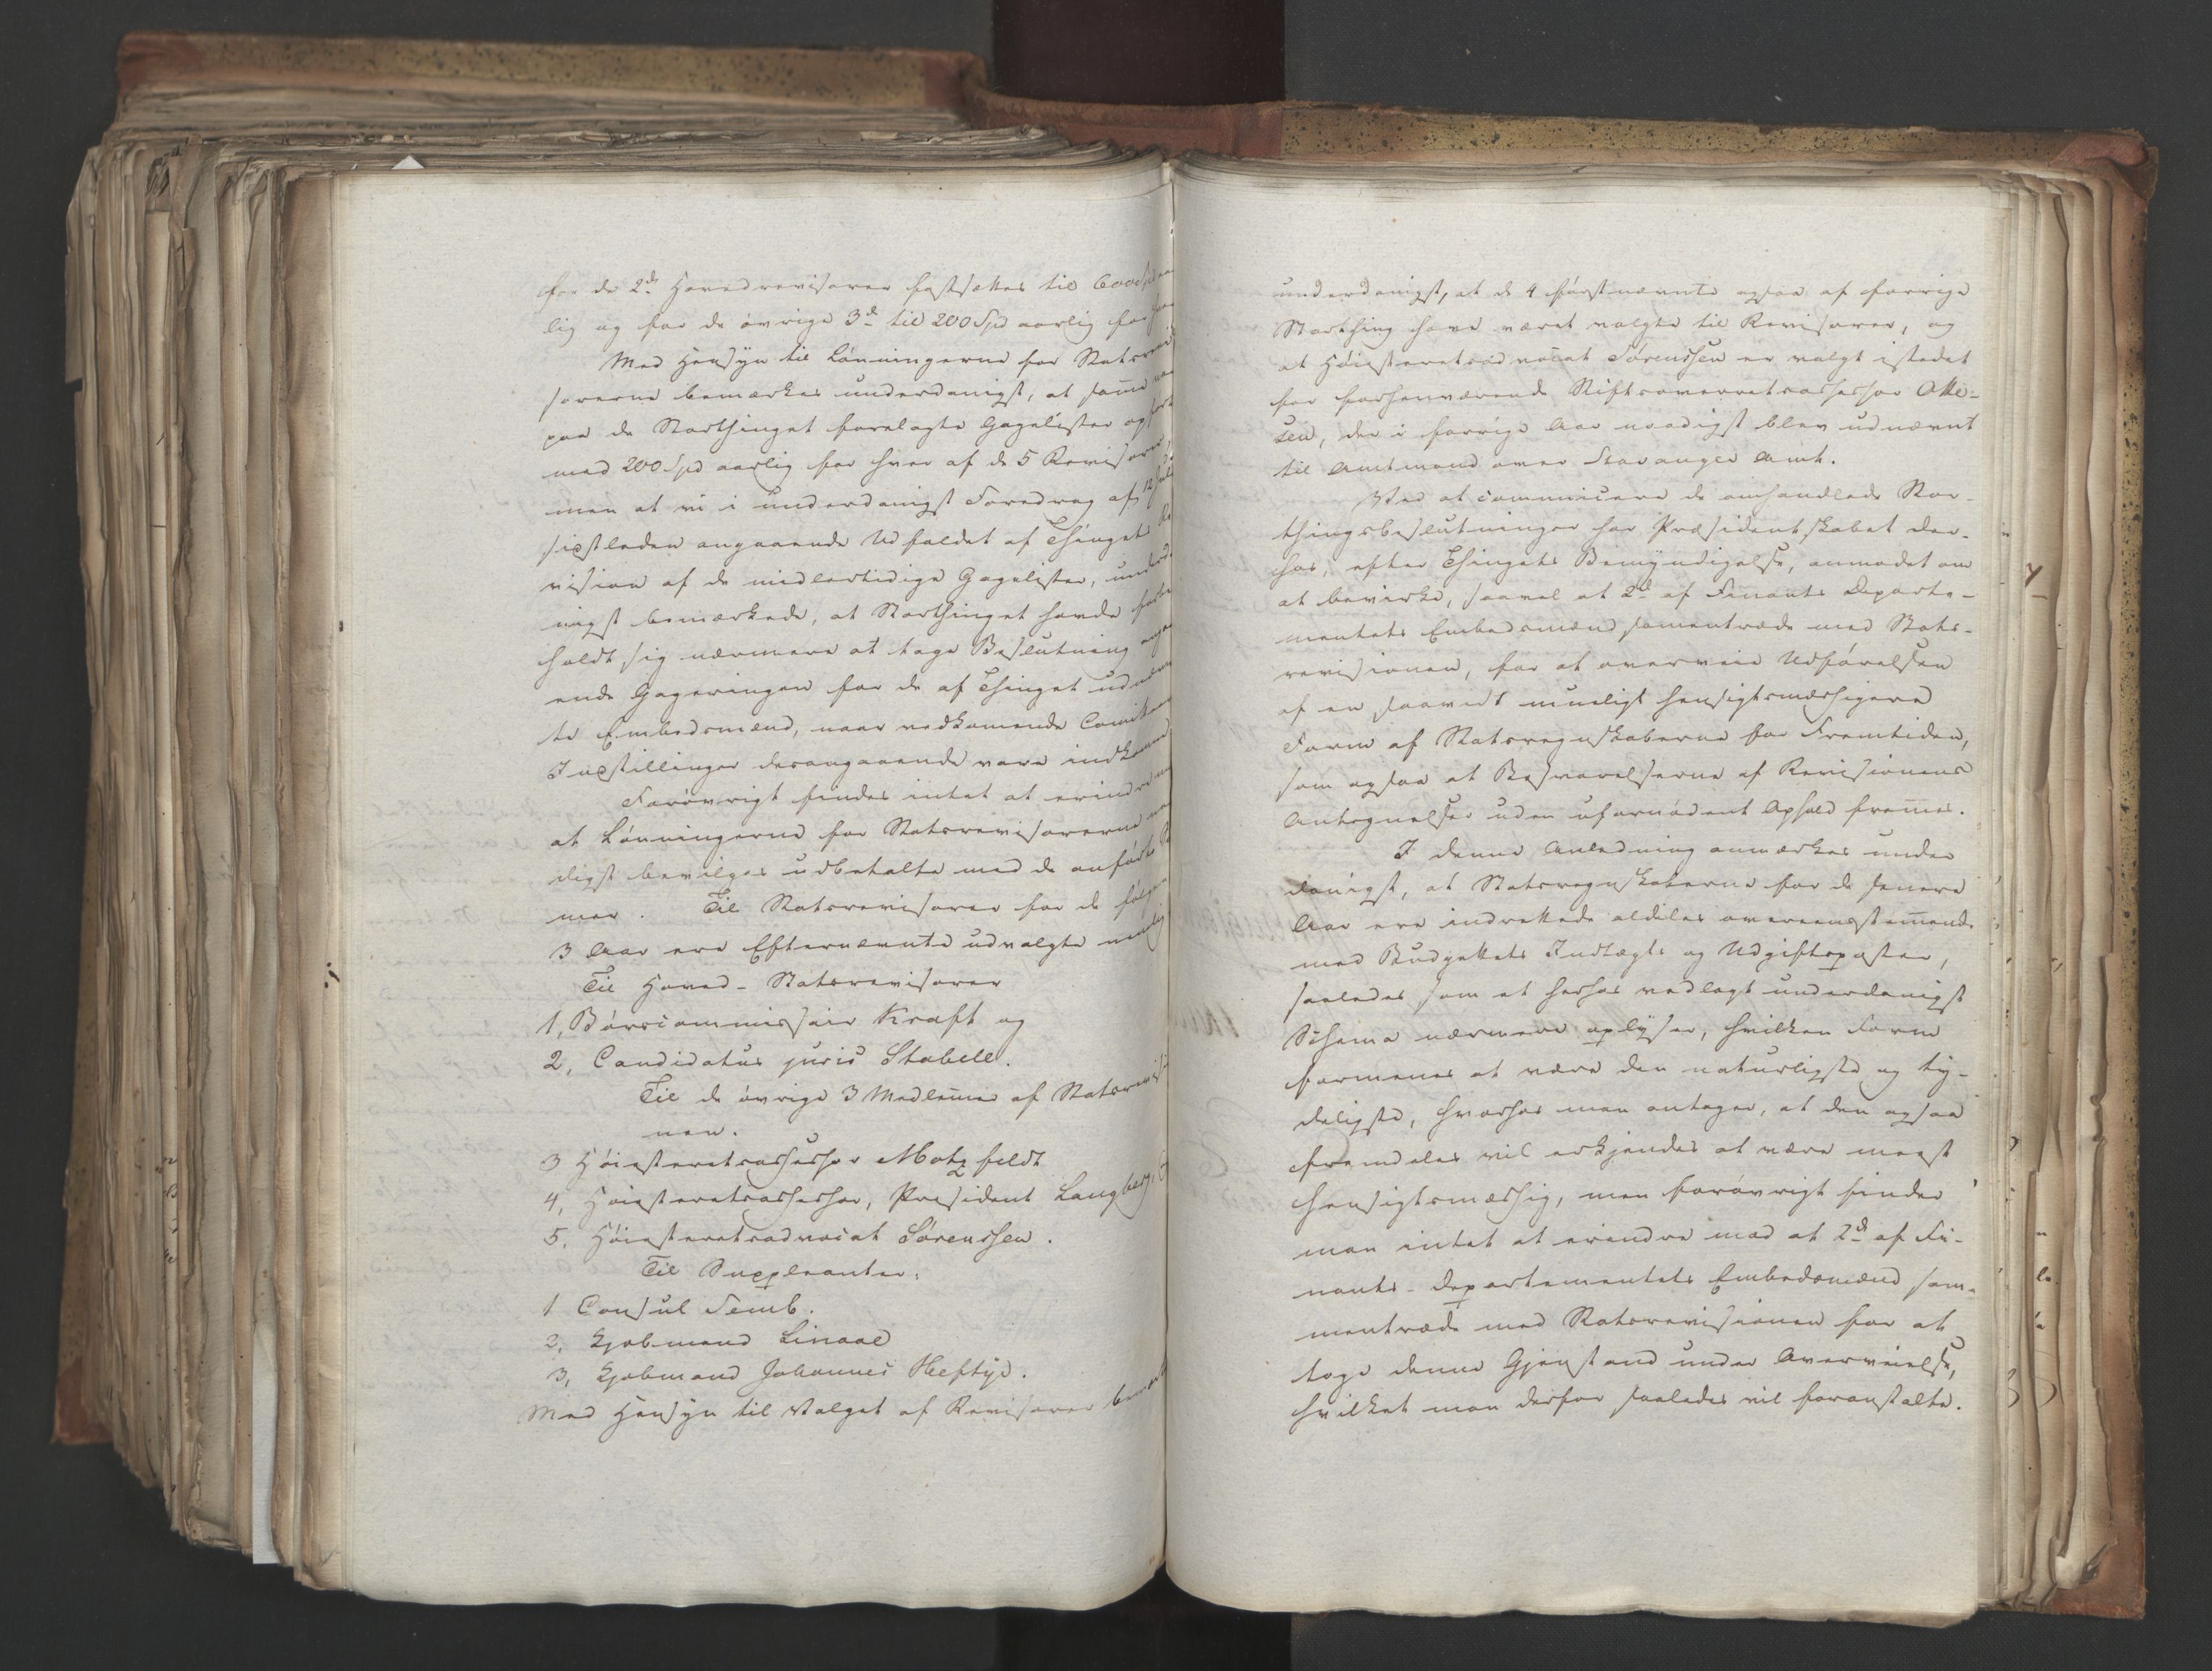 for de 2de Hovedrevisorer fastsættes til 600 Spd aar
lig og for de øvrige 3de til 200 Spd aarlig for hver
Med Hensyn til Lønningerne for Statsrevi
sorerne bemærkes underdanigst, at samme
paa de Storthinget forelagte Gagelister
med 200 Spd aarlig for hver af de 5 Revisorer,
men at vi i underdanigst Foredrag af 12 Juli
sidstleden angaaende Udfaldet af Thingets Re
vision af de midlertidige Gagelister, underda
nigst bemærkede, at Storthinget havde forbe
holdt sig nærmere at tage Beslutning angaa
ende Gageringen for de af Thinget udnævn
te Embedsmænd, naar vedkommende Comitees
Indstillinger desangaaende vare indkomne
Forøvrigt findes intet at erindre mod
at Lønningerne for Statsrevisorerne naa
digst bevilges udbetalte med de anførte Sum
mer. Til Statsrevisorer for de følgende
3 Aar ere Efternævnte udvalgte nemlig
Til Hoved-Statsrevisorer
1, Børscommissair Kraft og
2, Candidatus juris Stabell.
Til de øvrige 3 Medlemmer af Statsrevisio
nen.
3 Høiesteretsassessor Motzfeldt
4, Høiesteretsassessor, Præsident Langberg,
5, Høiesteretsadvocat Sørenssen.
Til Suppleanter:
1 Consul Semb.
2, Kjøbmand Linaae
3, Kjøbmand Johannes Heftye.
Med Hensyn til Valget af Revisorer bemærkes
underdanigst, at de 4 førstnævnte ogsaa af forrige
Storthing have været valgte til Revisorer, og
at Høiesteretsadvocat Sørenssen er valgt istedet
for forhenværende Stiftsoverretsassessor Otte-
sen, der i forrige Aar naadigst blev udnævnt
til Amtmand over Stavanger Amt.
Ved at communicere de omhandlede Stor-
thingsbeslutninger har Præsidentskabet der-
hos, efter Thingets Bemyndigelse, anmodet om
at bevirke, saavel at 2de af Finants Departe-
mentets Embedsmænd sammentræde med Stats-
revisionen, for at overveie Udførelsen
af en saavidt mueligt hensigtsmæssigere
Form af Statsregnskaberne for Fremtiden,
som ogsaa at Besvarelserne af Revisionens
Antegnelser uden ufornødent Ophold fremmes.
I denne Anledning anmærkes under
danigst, at Statsregnskaberne for de senere
Aar ere indrettede aldeles overeensstemmende
med Budgettets Indtægts og Udgiftsposter,
saaledes som et herhos vedlagt underdanigst
Schema nærmere oplyser, hvilken Form
formenes at være den naturligste og ty-
deligste, hvorhos man antager, at den ogsaa
fremdeles vil erkjendes at være meest
hensigtsmæssig, men forøvrigt finder
man intet at erindre mod at 2de af Fi-
nants-Departementets Embedsmænd sam-
mentræde med Statsrevisionen for at
tage denne Gjenstand under Overveielse,
hvilket man derfor saaledes vil foranstalte.